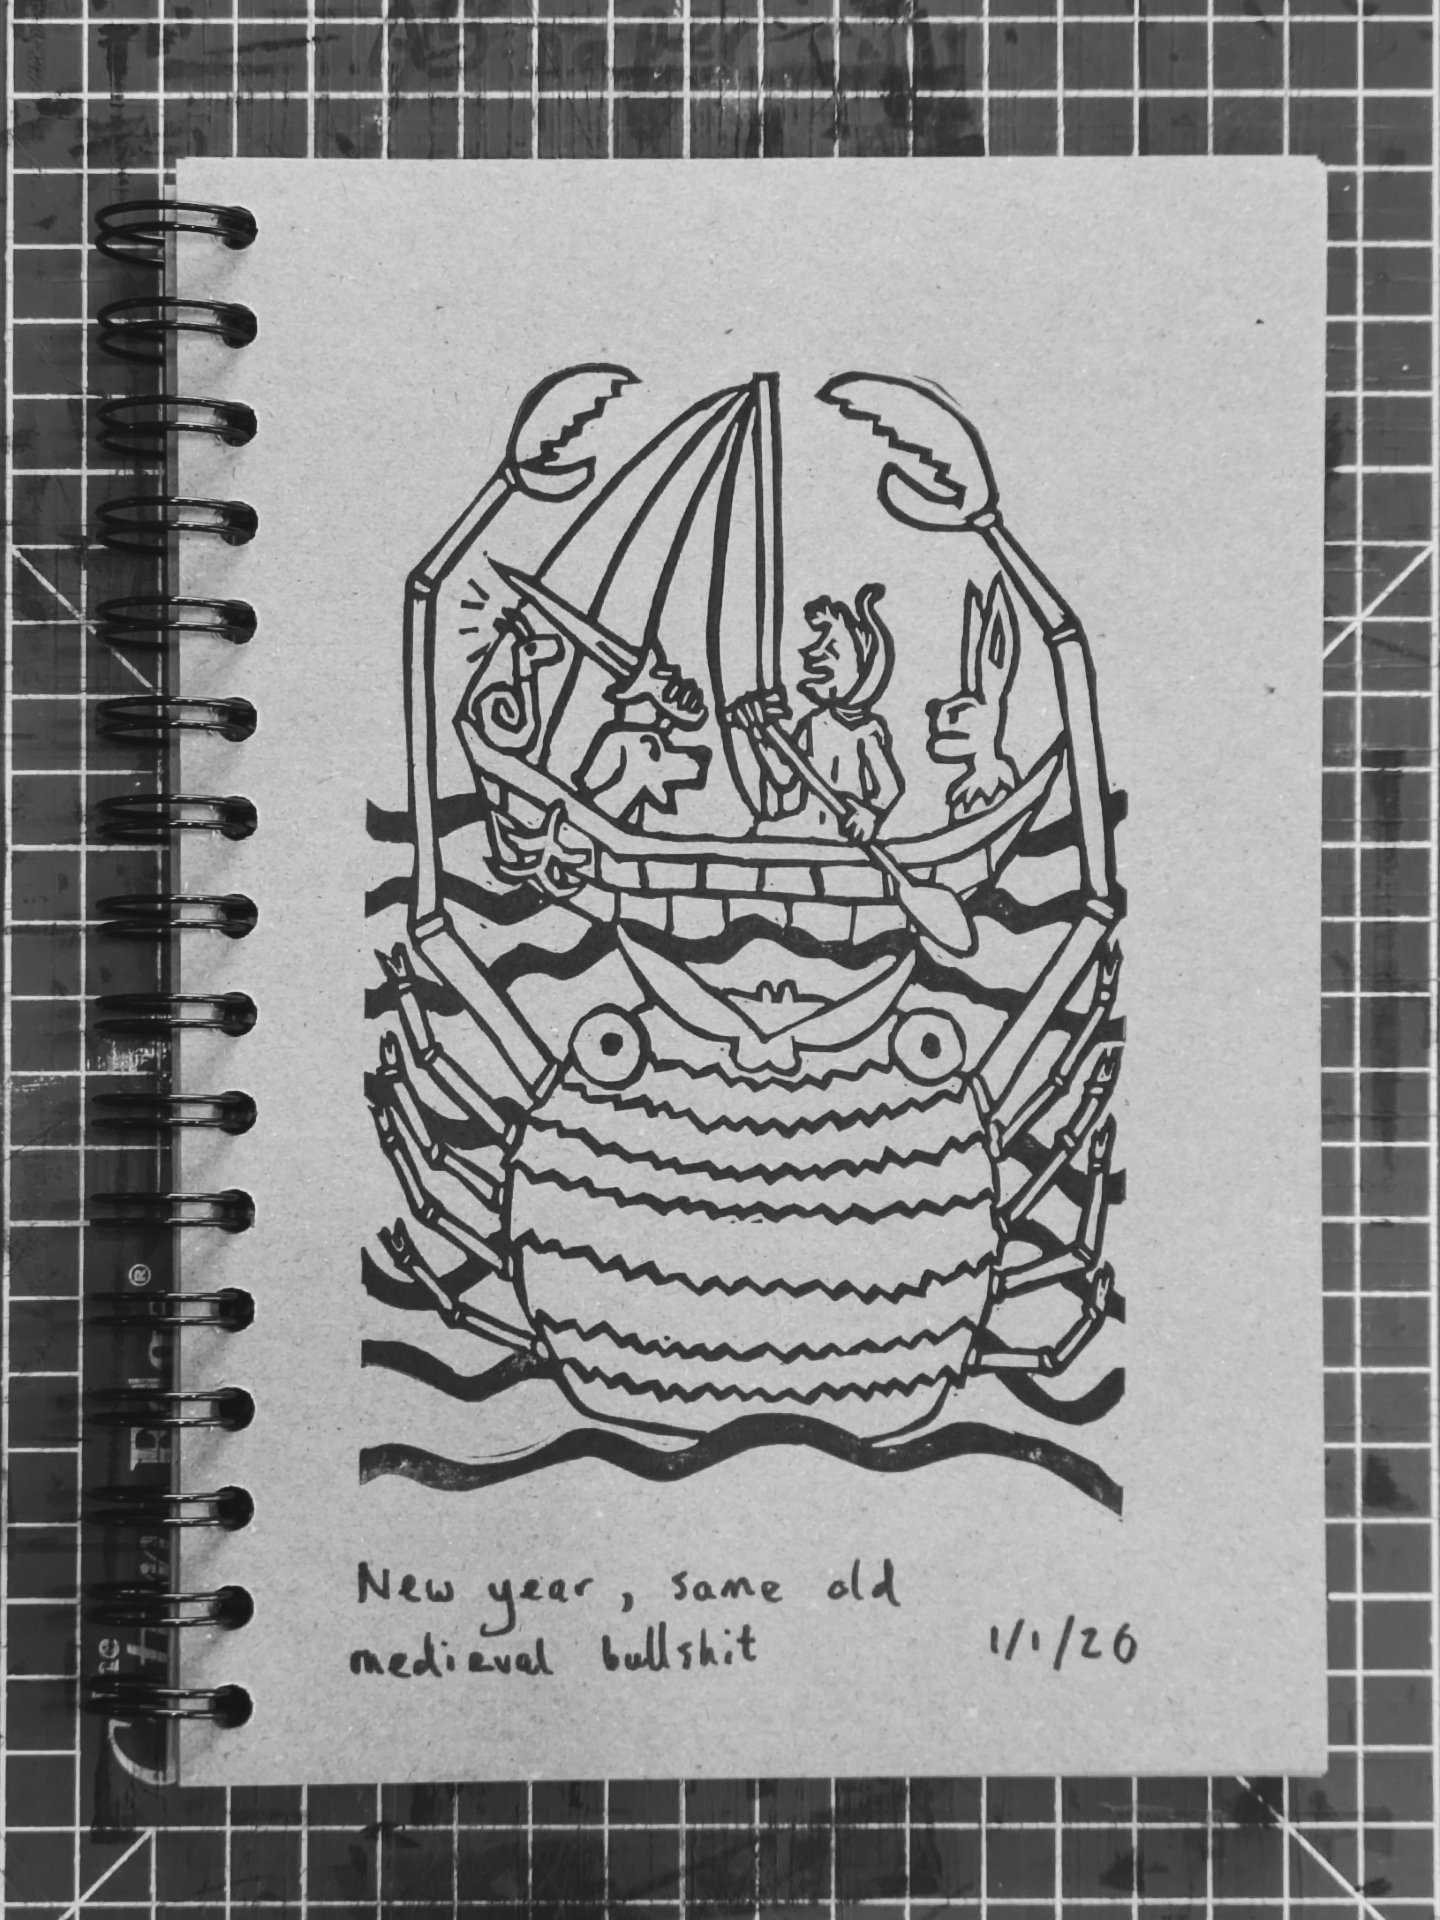 New year, same old
medieval bullshit
1/1/26